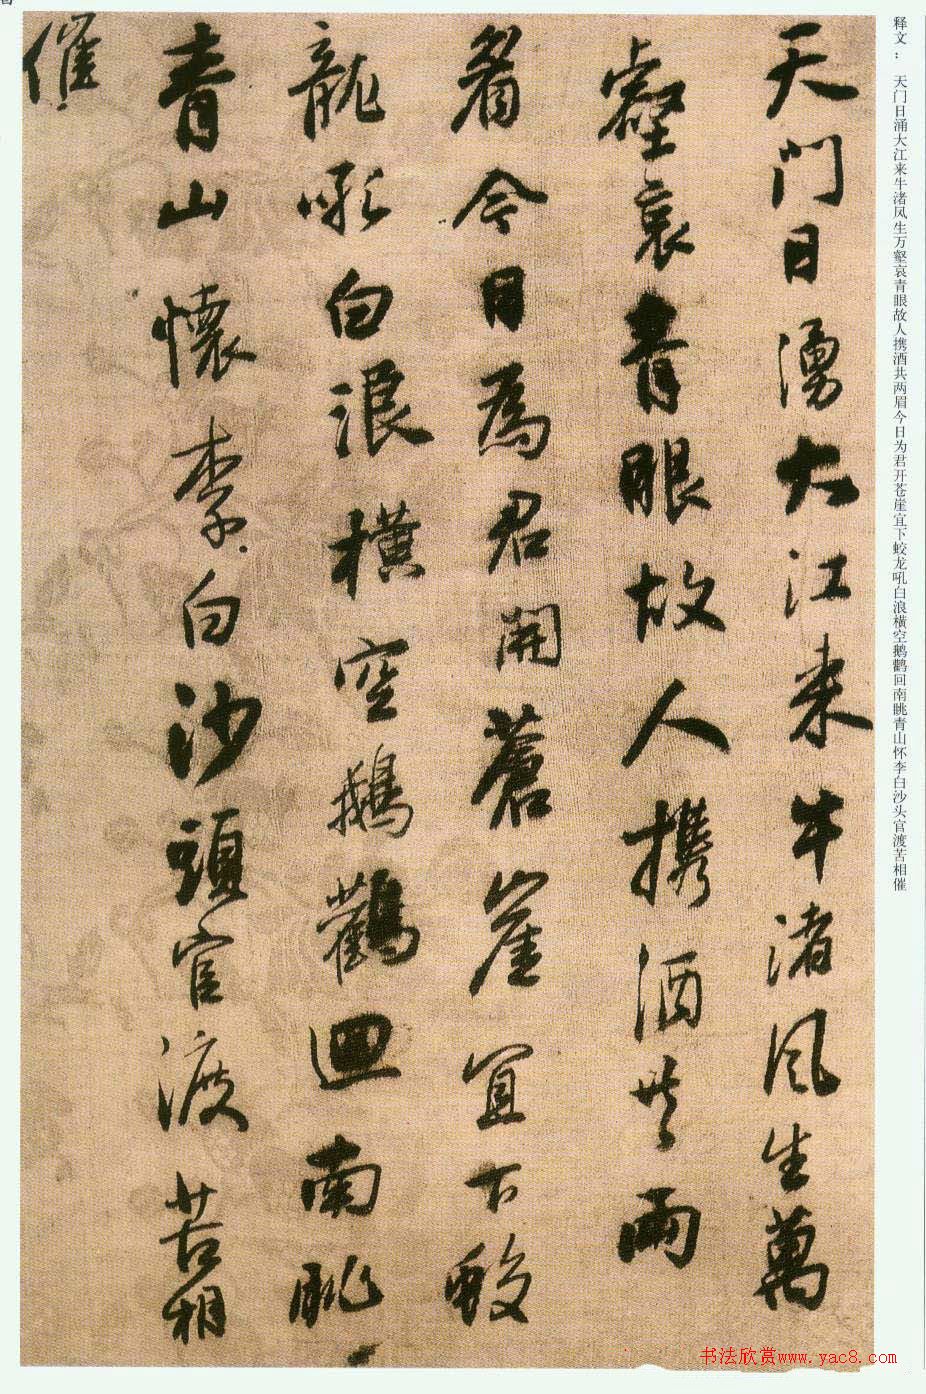 释文： 天门日涌大江来牛渚风生万壑哀青眼故人携酒共两眉今日为君开苍崖宜下蛟龙吼白浪横空鹅鹳回南眺青山怀李白沙头官渡苦相催
天門日湧大江来牛渚风生萬
壑哀青眼故人携酒共兩
眉今日為君開蒼崖宜下蛟
龍吼白浪横空鵝鸛迴南眺
青山懷李白沙頭官渡苦相
催
书法欣赏www.yac8.com